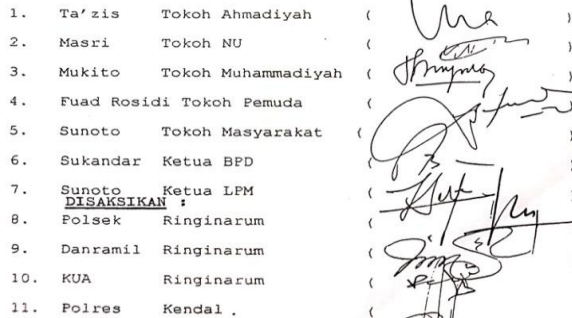 1. Ta'zis Tokoh Ahmadiyah ( )
2. Masri Tokoh NU ( )
3. Mukito Tokoh Muhammadiyah ( )
4. Fuad Rosidi Tokoh Pemuda (
5. Sunoto Tokoh Masyarakat (
6. Sukandar Ketua BPD (
7. Sunoto Ketua LPM ( )
DISAKSIKAN :
8. Polsek Ringinarum ( )
9. Danramil Ringinarum ( )
10. KUA Ringinarum ( )
11. Polres Kendal . ( )